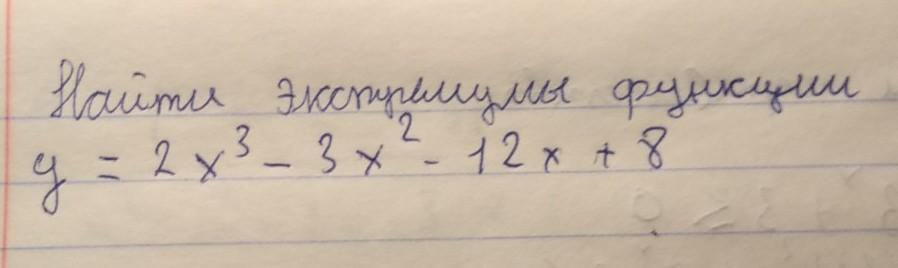 Найти экстремумы функции
y = 2x³ - 3x² - 12x + 8